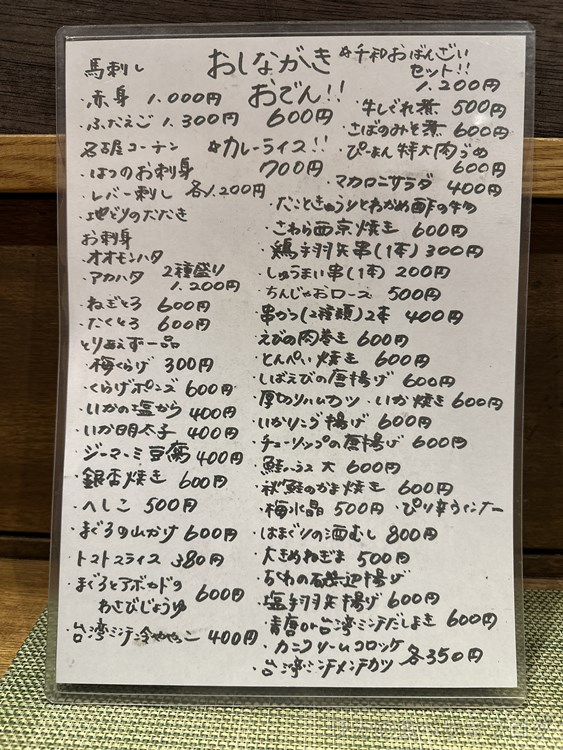 おしながき
馬刺し
・赤身 1.000円
・ふたえご 1.300円
名古屋コーチン
・はつのお刺身
・レバー刺し 各1.200円
・地どりのたたき
お刺身
・オオモンハタ
・アカハタ 2種盛り
1.200円
・ねぎとろ 600円
・たくとろ 600円
とりあえず一品
・梅くらげ 300円
・くらげポンズ 600円
・いかの塩から 400円
・いか明太子 400円
・ジーマーミ豆腐 400円
・銀杏焼き 600円
・へしこ 500円
・まぐろの山かけ 600円
・トマトスライス 380円
・まぐろとアボカドの
わさびじょうゆ 600円
・台湾ミンチ冷ややっこ 400円
おでん!!
600円
☆カレーライス!!
700円
☆千和おばんざい
セット!!
1.200円
・牛しぐれ煮 500円
・さばのみそ煮 600円
・ぴーまん特大肉づめ
600円
・マカロニサラダ 400円
・たこときゅうりとわかめ酢の物
・さわら西京焼き 600円
・鶏手羽矢串(1本) 300円
・しゅうまい串(1本) 200円
・ちんじゃおロース 500円
・串かつ(2種類)2本 400円
・えびの肉巻き 600円
・とんぺい焼き 600円
・しばえびの唐揚げ 600円
・厚切りハムカツ ・いか焼き 600円
・いかリング揚げ 600円
・チューリップの唐揚げ 600円
・鮭ハラス 大 600円
・秋鮭のかま焼き 600円
・梅水晶 500円 ・ぴり辛ウインナー
・はまぐりの酒むし 800円
・大きめねぎま 500円
・ちくわの磯辺揚げ
・塩手羽矢揚げ 600円
・青唐or台湾ミンチだしまき 600円
・カニクリームコロッケ
・台湾ミンチメンチカツ 各350円